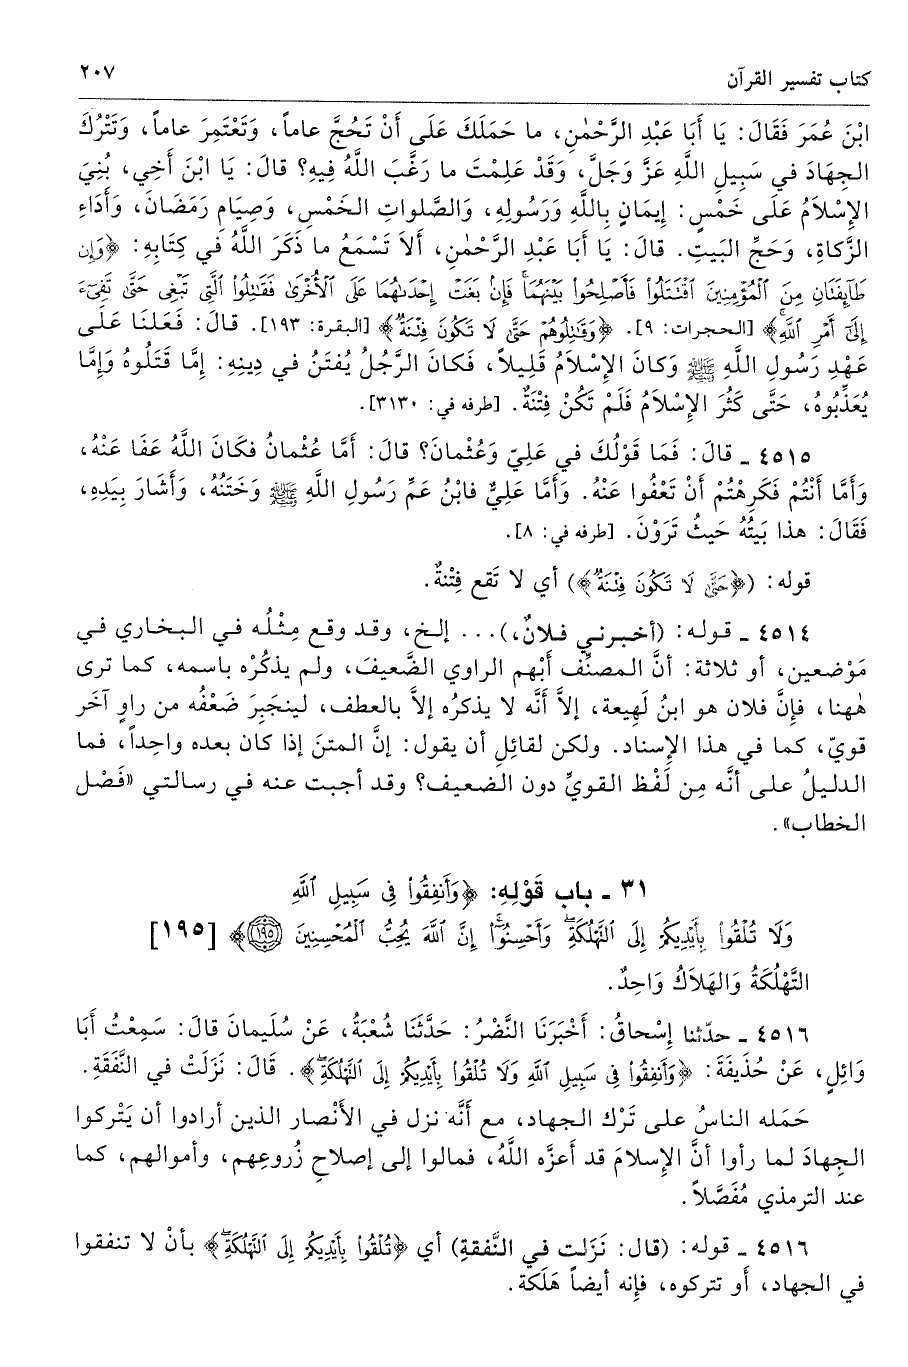 كتاب تفسير القرآن
٢٠٧
ابْنَ عُمَرَ فَقَالَ: يَا أَبَا عَبْدِ الرَّحْمٰنِ، ما حَمَلَكَ عَلَى أَنْ تَحُجَّ عاماً، وَتَعْتَمِرَ عاماً، وَتَتْرُكَ
الجِهَادَ في سَبِيلِ اللَّهِ عَزَّ وَجَلَّ، وَقَدْ عَلِمْتَ ما رَغَّبَ اللَّهُ فِيهِ؟ قالَ: يَا ابْنَ أَخِي، بُنِيَ
الإِسْلَامُ عَلَى خَمْسٍ: إِيمَانٍ بِاللَّهِ وَرَسُولِهِ، وَالصَّلَواتِ الخَمْسِ، وَصِيَامِ رَمَضَانَ، وَأَدَاءِ
الزَّكاةِ، وَحَجِّ البَيتِ. قالَ: يَا أَبَا عَبْدِ الرَّحْمٰنِ، أَلاَ تَسْمَعُ ما ذَكَرَ اللَّهُ في كِتَابِهِ: ﴿وَإِن
طَآئِفَتَانِ مِنَ ٱلْمُؤْمِنِينَ ٱقْتَتَلُوا۟ فَأَصْلِحُوا۟ بَيْنَهُمَاۖ فَإِنۢ بَغَتْ إِحْدَىٰهُمَا عَلَى ٱلْأُخْرَىٰ فَقَٰتِلُوا۟ ٱلَّتِى تَبْغِى حَتَّىٰ تَفِىٓءَ
إِلَىٰٓ أَمْرِ ٱللَّهِ﴾ [الحجرات: ٩]. ﴿وَقَٰتِلُوهُمْ حَتَّىٰ لَا تَكُونَ فِتْنَةٌ﴾ [البقرة: ١٩٣]. قالَ: فَعَلنَا عَلَى
عَهْدِ رَسُولِ اللَّهِ ﷺ وَكانَ الإِسْلَامُ قَلِيلاً، فَكانَ الرَّجُلُ يُفتَنُ في دِينِهِ: إِمَّا قَتَلُوهُ وَإِمَّا
يُعَذِّبُوهُ، حَتَّى كَثُرَ الإِسْلَامُ فَلَمْ تَكُنْ فِتْنَةٌ. [طرفه في: ٣١٣٠].
٤٥١٥ ـ قالَ: فَمَا قَوْلُكَ في عَلِيّ وَعُثْمانَ؟ قالَ: أَمَّا عُثْمانُ فكانَ اللَّهُ عَفَا عَنْهُ،
وَأَمَّا أَنْتُمْ فَكَرِهْتُمْ أَنْ تَعْفُوا عَنْهُ. وَأَمَّا عَلِيٌّ فابْنُ عَمِّ رَسُولِ اللَّهِ ﷺ وَخَتَنُهُ، وَأَشَارَ بِيَدِهِ،
فَقَالَ: هذا بَيتُهُ حَيثُ تَرَوْنَ. [طرفه في: ٨].
قوله: (﴿حَتَّىٰ لَا تَكُونَ فِتْنَةٌ﴾) أي لا تَقع فِتْنةٌ.
٤٥١٤ ـ قوله: (أخبرني فلانٌ،)... إلخ، وقد وقع مِثْلُه في البخاري في
مَوْضعين، أو ثلاثة: أنَّ المصنِّف أَبْهم الراوي الضَّعيفَ، ولم يذكرْه باسمه، كما ترى
هٰهنا، فإِنَّ فلان هو ابنُ لَهِيعة، إلاَّ أَنَّه لا يذكرُه إلاَّ بالعطف، لينجَبِرَ ضَعْفُه من راوٍ آخَر
قويّ، كما في هذا الإِسناد. ولكن لقائلٍ أن يقول: إنَّ المتنَ إذا كان بعده واحِداً، فما
الدليلُ على أنَّه مِن لَفْظ القويِّ دون الضعيف؟ وقد أجبت عنه في رسالتي «فَصْل
الخطاب».
٣١ ـ باب قَوْلِهِ: ﴿وَأَنفِقُوا۟ فِى سَبِيلِ ٱللَّهِ
وَلَا تُلْقُوا۟ بِأَيْدِيكُمْ إِلَى ٱلتَّهْلُكَةِۛ وَأَحْسِنُوٓا۟ۛ إِنَّ ٱللَّهَ يُحِبُّ ٱلْمُحْسِنِينَ ١٩٥﴾ [١٩٥]
التَّهْلُكَةُ وَالهَلاَكُ وَاحِدٌ.
٤٥١٦ ـ حدّثنا إِسْحاقُ: أَخْبَرَنَا النَّضْرُ: حَدَّثَنَا شُعْبَةُ، عَنْ سُلَيمانَ قالَ: سَمِعْتُ أَبَا
وَائِلٍ، عَنْ حُذَيفَةَ: ﴿وَأَنفِقُوا۟ فِى سَبِيلِ ٱللَّهِ وَلَا تُلْقُوا۟ بِأَيْدِيكُمْ إِلَى ٱلتَّهْلُكَةِ﴾. قَالَ: نَزَلَتْ في النَّفَقَةِ.
حَمَله الناسُ على تَرْك الجهاد، مع أَنَّه نزل في الأَنْصار الذين أرادوا أن يَتْركوا
الجِهادَ لما رأوا أنَّ الإِسلامَ قد أعزَّه اللَّهُ، فمالوا إلى إصلاحِ زُروعِهم، وأموالهم، كما
عند الترمذي مُفَصَّلاً.
٤٥١٦ ـ قوله: (قال: نَزَلت في النَّفقةِ) أي ﴿تُلْقُوا۟ بِأَيْدِيكُمْ إِلَى ٱلتَّهْلُكَةِ﴾ بأنْ لا تنفقوا
في الجهاد، أو تتركوه، فإنه أيضاً هَلَكة.